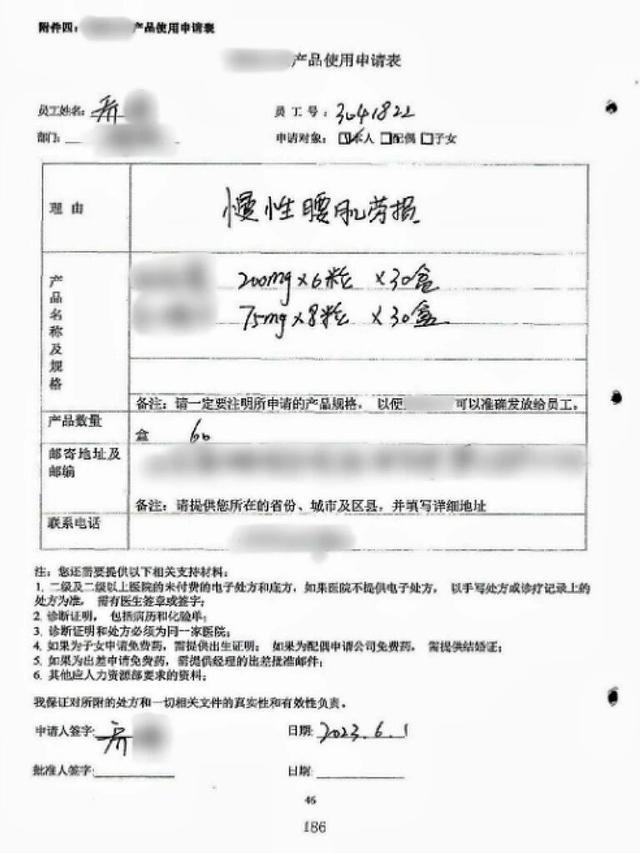 附件四： 产品使用申请表
产品使用申请表
员工姓名：乔 员 工 号：3041822
部门： 申请对象：☑本人 □配偶 □子女
理 由 慢性腰肌劳损
产品名称及规格 200mg×6粒 ×30盒
75mg×8粒 ×30盒
备注：请一定要注明所申请的产品规格，以便 可以准确发放给员工。
产品数量 盒 60
邮寄地址及邮编
备注：请提供您所在的省份、城市及区县，并填写详细地址
联系电话
注：您还需要提供以下相关支持材料：
1. 二级及二级以上医院的未付费的电子处方和底方，如果医院不提供电子处方，以手写处方或诊疗记录上的
处方为准，需有医生签章或签字；
2. 诊断证明，包括病历和化验单；
3. 诊断证明和处方必须为同一家医院；
4. 如果为子女申请免费药，需提供出生证明；如果为配偶申请公司免费药，需提供结婚证；
5. 如果为出差申请免费药，需提供经理的出差批准邮件；
6. 其他应人力资源部要求的资料；
我保证对所附的处方和一切相关文件的真实性和有效性负责。
申请人签字：乔 日期：2023.6.1
批准人签字： 日期：
46
186